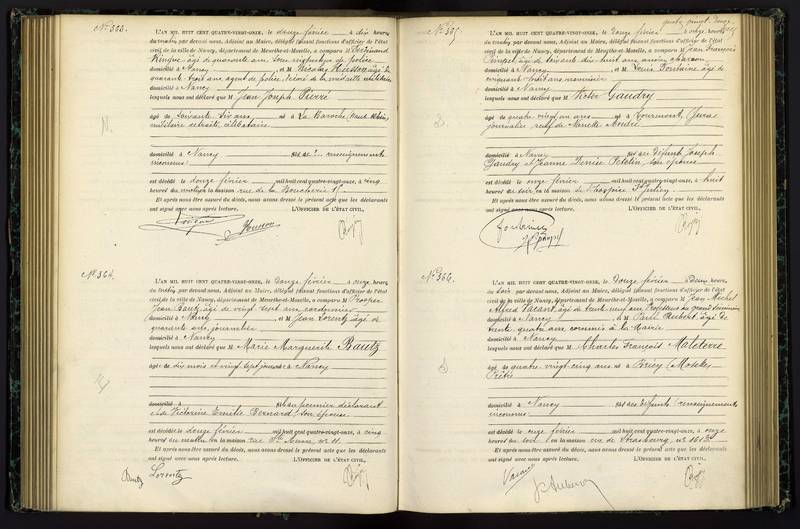 N° 363.
L'AN MIL HUIT CENT QUATRE-VINGT-ONZE, le douze février à dix heures
du matin par devant nous, Adjoint au Maire, délégué faisant fonctions d'officier de l'état
civil de la ville de Nancy, département de Meurthe-et-Moselle, a comparu M Ferdinand
âgé de quarante ans, sous de police
domicilié à Nancy, et M Nicolas Husson âgé de
quarante ans agent de police, décoré de la médaille militaire
domicilié à Nancy
lesquels nous ont déclaré que M Jean Joseph Pierré
âgé de soixante dix ans né à La Baroche, Haut-Rhin,
militaire retraité, célibataire
domicilié à Nancy fils de renseignements
inconnus
est décédé le douze février mil huit cent quatre-vingt-onze, à cinq
heures du matin en la maison rue de la Boucherie
Et après nous être assuré du décès, nous avons dressé le présent acte que les déclarants
ont signé avec nous après lecture. L'OFFICIER DE L'ÉTAT CIVIL,
Husson
N° 364.
L'AN MIL HUIT CENT QUATRE-VINGT-ONZE, le douze février à onze heures
du matin par devant nous, Adjoint au Maire, délégué faisant fonctions d'officier de l'état
civil de la ville de Nancy, département de Meurthe-et-Moselle, a comparu M Prosper
Jean Bautz âgé de vingt sept ans, cordonnier
domicilié à Nancy, et M Jean Lorentz âgé de
quarante ans, journalier
domicilié à Nancy
lesquels nous ont déclaré que M Marie Marguerite Bautz
âgé de dix mois et vingt sept jours née à Nancy
domicilié à fils du premier déclarant
et de Victorine Emélie Bernard son épouse
est décédé le douze février mil huit cent quatre-vingt-onze, à cinq
heures du matin en la maison rue Ste Anne n° 11.
Et après nous être assuré du décès, nous avons dressé le présent acte que les déclarants
ont signé avec nous après lecture. L'OFFICIER DE L'ÉTAT CIVIL,
Bautz Lorentz
quatre vingt douze
N° 365.
L'AN MIL HUIT CENT QUATRE-VINGT-ONZE, le douze février à onze heures
du matin par devant nous, Adjoint au Maire, délégué faisant fonctions d'officier de l'état
civil de la ville de Nancy, département de Meurthe-et-Moselle, a comparu M Jean François
âgé de soixante dix-huit ans, ancien
domicilié à Nancy, et M Louis Fontaine âgé de
ans, menuisier
domicilié à Nancy
lesquels nous ont déclaré que M Victor Gaudry
âgé de quatre vingt un ans né à Tourmont, (Jura)
journalier, veuf de Nanette
domicilié à Nancy fils des défunts Joseph
Gaudry et Jeanne Denise son épouse
est décédé le onze février mil huit cent quatre-vingt-onze, à huit
heures du soir en la maison de l'hospice St Julien
Et après nous être assuré du décès, nous avons dressé le présent acte que les déclarants
ont signé avec nous après lecture. L'OFFICIER DE L'ÉTAT CIVIL,
Fontaine
N° 366.
L'AN MIL HUIT CENT QUATRE-VINGT-ONZE, le douze février à deux heures
du soir par devant nous, Adjoint au Maire, délégué faisant fonctions d'officier de l'état
civil de la ville de Nancy, département de Meurthe-et-Moselle, a comparu M Jean Michel
Alfred Vacant âgé de trente neuf ans Professeur au grand Séminaire
domicilié à Nancy, et M Aubert âgé de
trente quatre ans, commis à la Mairie
domicilié à Nancy
lesquels nous ont déclaré que M Charles François
âgé de quatre-vingt-cinq ans né à Briey (Moselle)
Prêtre
domicilié à Nancy fils des défunts (renseignements
inconnus
est décédé le onze février mil huit cent quatre-vingt-onze, à onze
heures du soir en la maison rue de Strasbourg, n°
Et après nous être assuré du décès, nous avons dressé le présent acte que les déclarants
ont signé avec nous après lecture. L'OFFICIER DE L'ÉTAT CIVIL,
Vacant